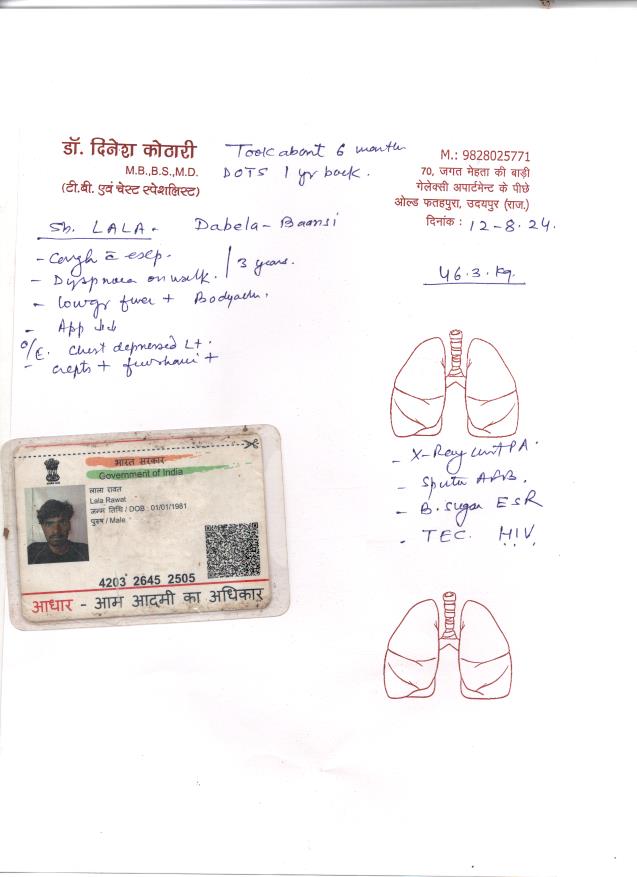 डॉ. दिनेश कोठारी
M.B.,B.S.,M.D.
(टी.बी. एवं चेस्ट स्पेशलिस्ट)
Took about 6 months
DOTS 1 yr back.
M.: 9828025771
70, जगत मेहता की बाड़ी
गेलेक्सी अपार्टमेन्ट के पीछे
ओल्ड फतहपुरा, उदयपुर (राज.)
दिनांक : 12-8-24.
Sh. LALA. Dabela-Baansi
46.3. kg.
- Cough c̄ exp.
- Dyspnoea on walk. / 3 years.
- lowgr fever + Bodyache.
- App ↓↓
O/E. Chest depressed Lt.
- crepts + +
- X-Ray PA.
- Sputum AFB.
- B. Sugar ESR
- TEC. HIV
भारत सरकार
Government of India
लाला रावत
Lala Rawat
जन्म तिथि / DOB : 01/01/1981
पुरुष / Male
4203 2645 2505
आधार - आम आदमी का अधिकार